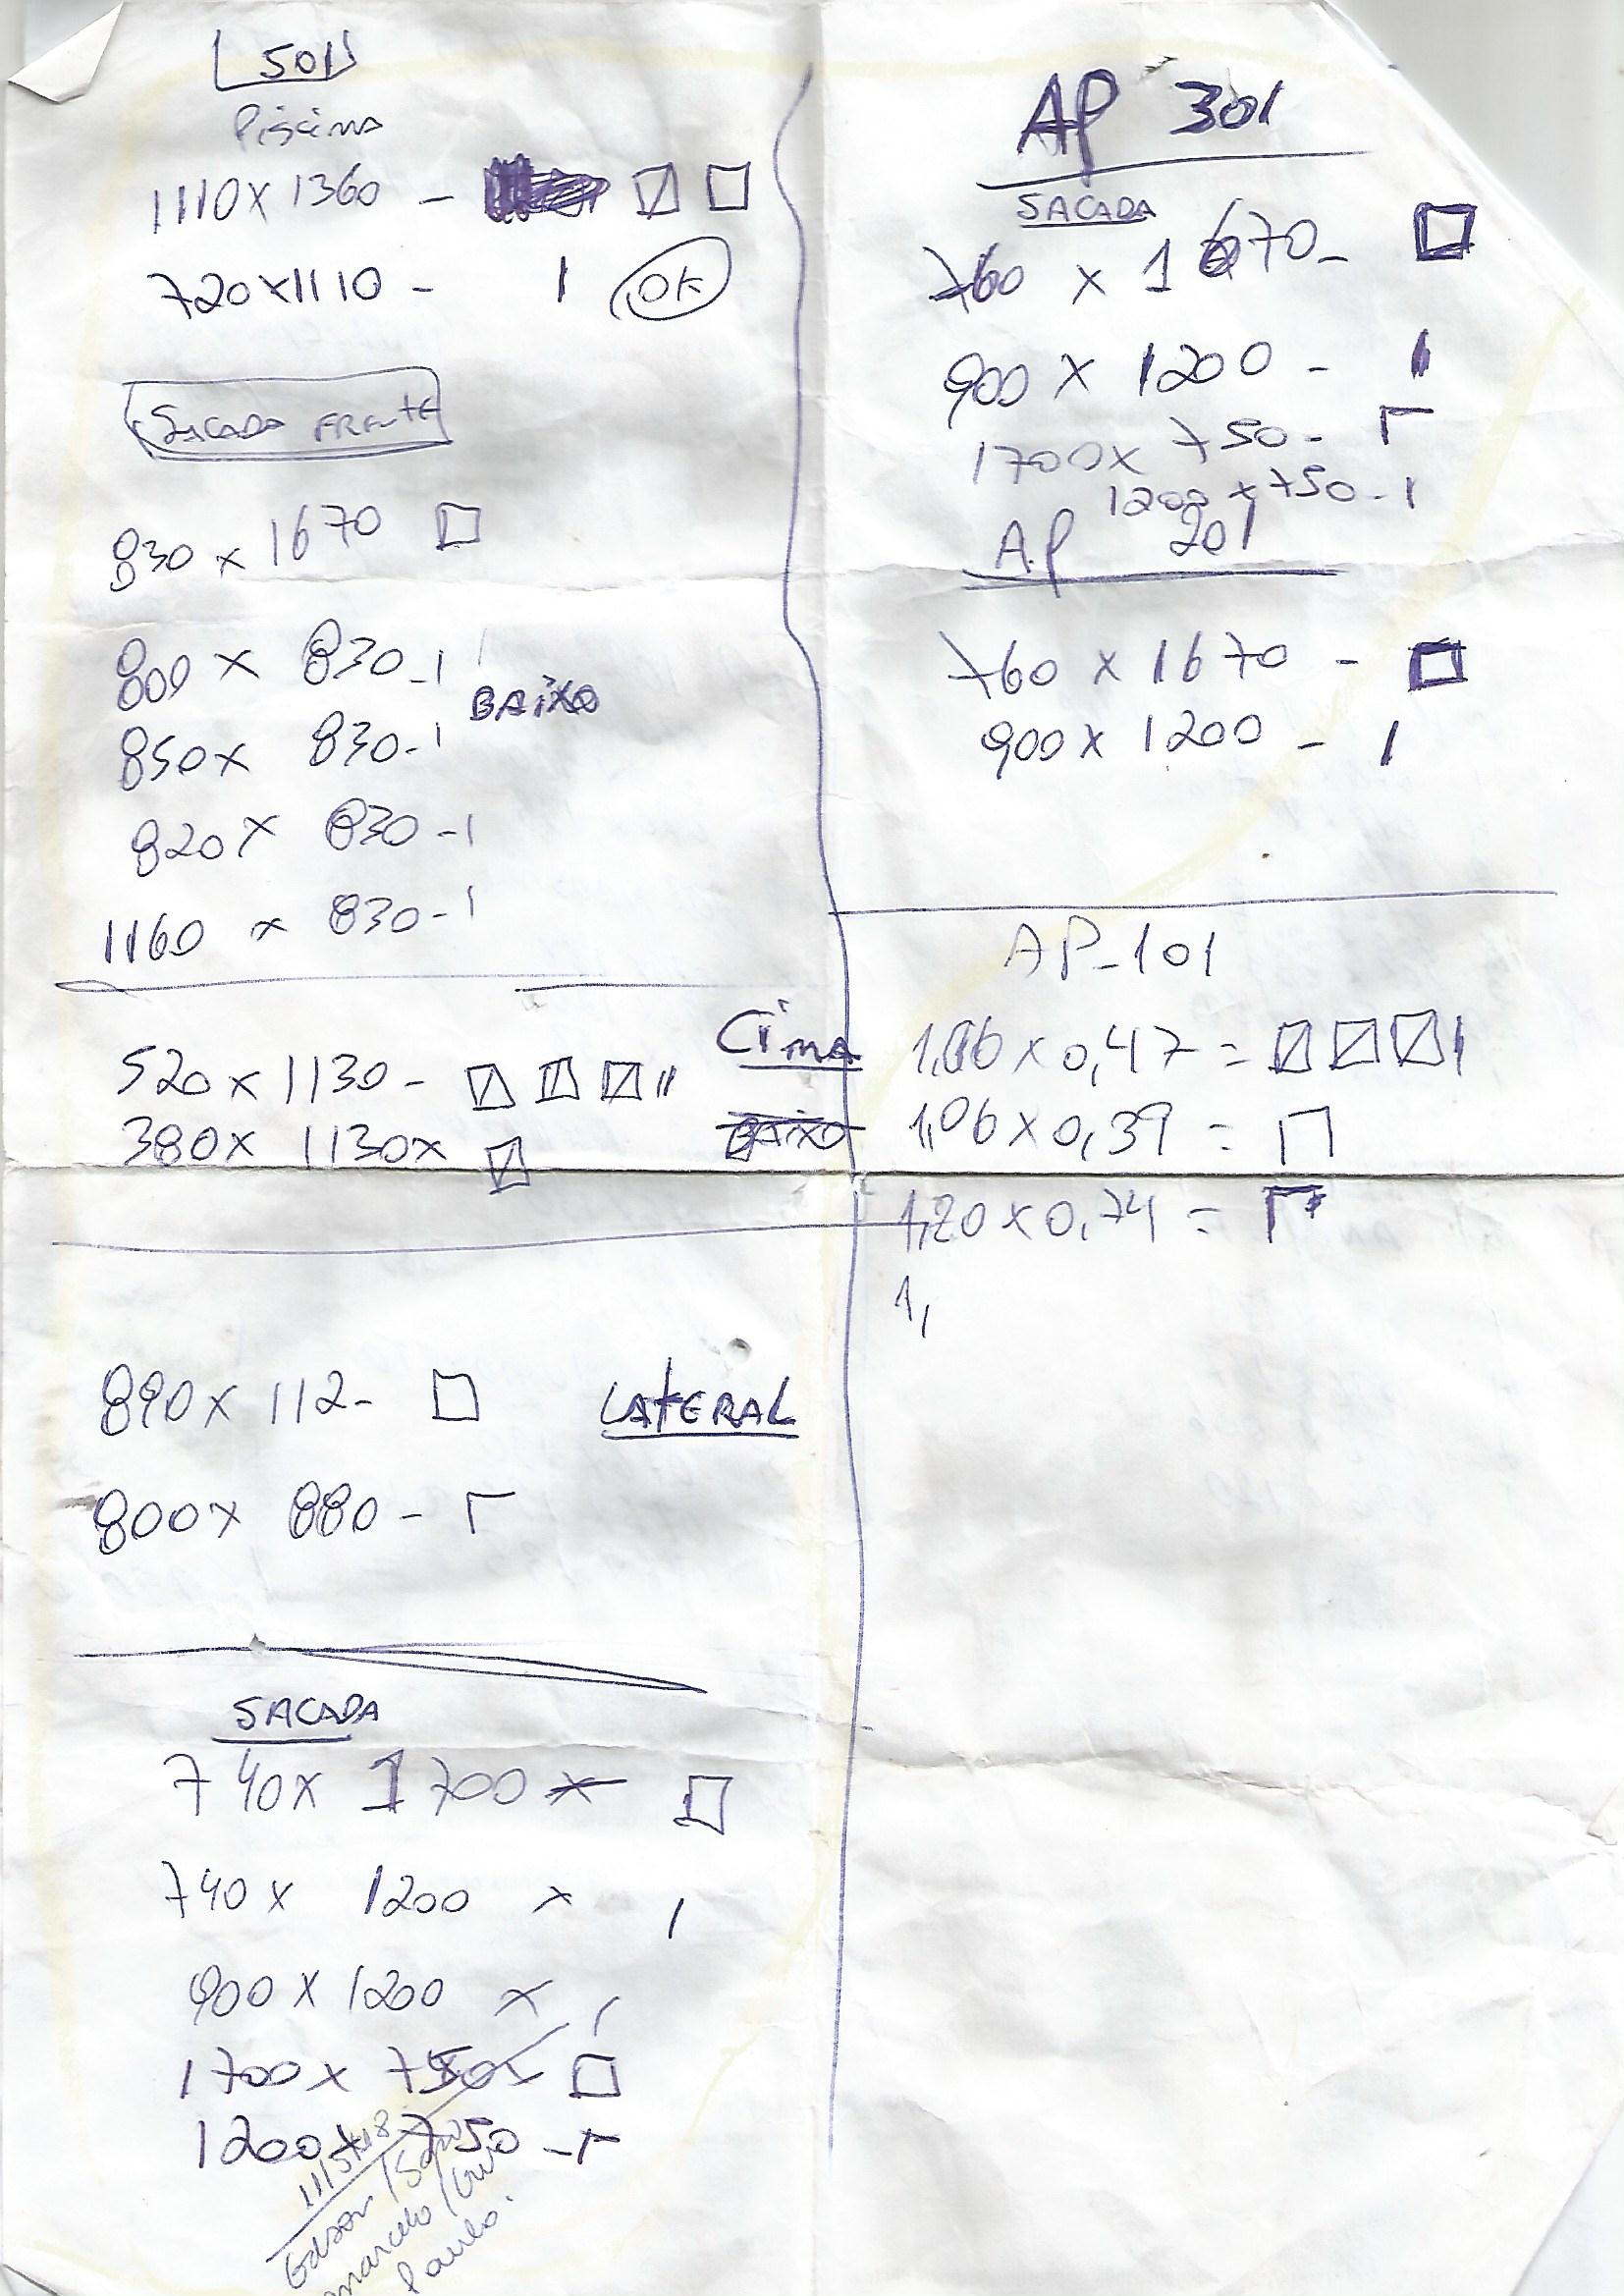 501
Piscina
1110 x 1360 -
720 x 1110 - 1 OK
SACADA FRENTE
830 x 1670
800 x 830 - 1
BAIXO
850 x 830 - 1
820 x 830 - 1
1160 x 830 - 1
Cima
520 x 1130 -
BAIXO
380 x 1130 x
890 x 112 -
LATERAL
800 x 880 -
SACADA
740 x 1700 x
740 x 1200 x 1
900 x 1200 x 1
1700 x 750
1200 x 750 -
Edson
marcelo
Paulo.
AP 301
SACADA
760 x 1670 -
900 x 1200 - 1
1700 x 750 -
1200 x 750 - 1
A.P 201
760 x 1670 -
900 x 1200 - 1
AP-101
1,06 x 0,47 =
1,06 x 0,39 =
1,20 x 0,74 =
1,